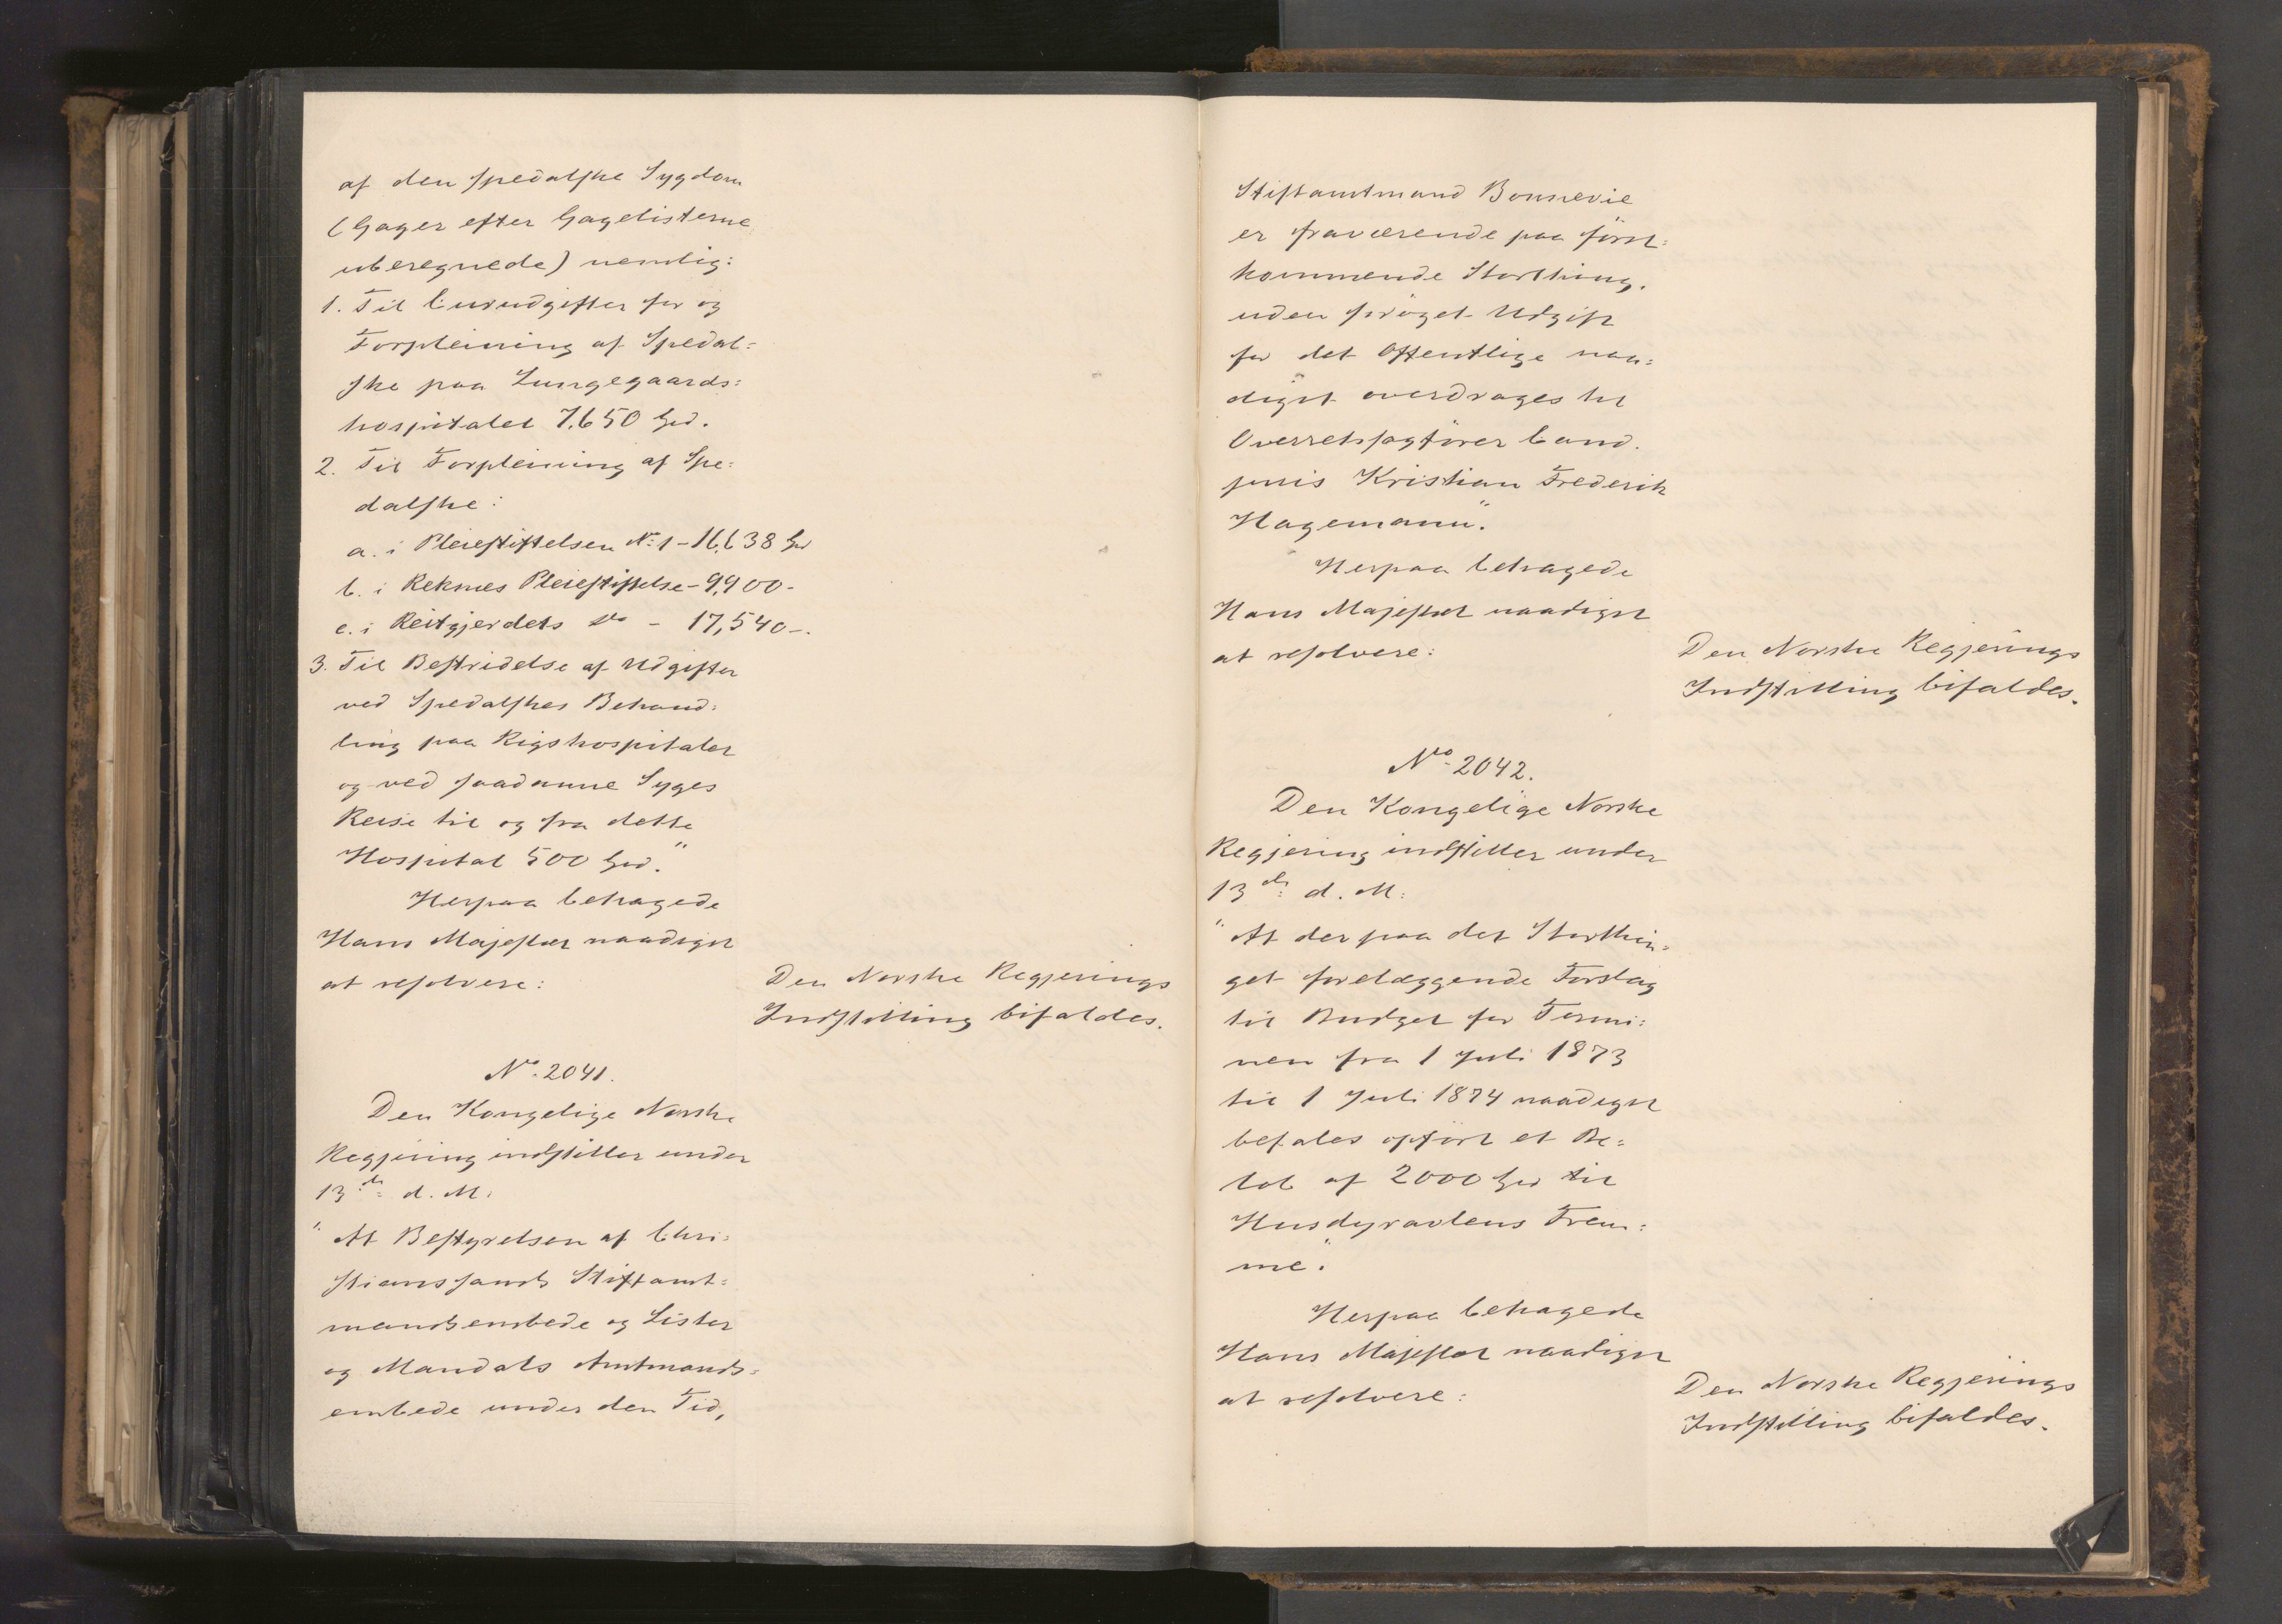 af den spedalske Sygdom
(Gager efter Gagelisterne
uberegnede) nemlig:
1. Til Curudgifter for og
Forpleining af Spedal=
ske paa Lungegaards=
hospitalet 7,650 Spd.
2. Til Forpleining af Spe=
dalske:
a. i Pleiestiftelsen No 1 - 16,638 Spd
b. i Reknes Pleiestiftelse - 9,900 -
c. i Reitgjerdets do - 17,540 -.
3. Til Bestridelse af Udgifter
ved Spedalskes Behand=
ling paa Rigshospitalet
og ved saadanne Syges
Reise til og fra dette
Hospital 500 Spd."
Herpaa behagede
Hans Majestæt naadigst
at resolvere:
Den Norske Regjerings
Indstilling bifaldes.
No. 2041.
Den Kongelige Norske
Regjering indstiller under
13de d. M:
"At Bestyrelsen af Chri=
stianssands Stiftamt=
mandsembede og Lister
og Mandals Amtmands=
embede under den Tid,
Stiftamtmand Bonnevie
er fraværende paa først=
kommende Storthing,
uden forøget Udgift
for det Offentlige naa=
digst overdrages til
Overretssagfører Cand.
juris Kristian Frederik
Hagemann".
Herpaa behagede
Hans Majestæt naadigst
at resolvere:
Den Norske Regjerings
Indstilling bifaldes.
No. 2042.
Den Kongelige Norske
Regjering indstiller under
13de d. M:
"At der paa det Storthin=
get forelæggende Forslag
til Budget for Termi=
nen fra 1 Juli 1873
til 1 Juli 1874 naadigst
befales opført et Be=
løb af 2000 Spd til
Husdyravlens Frem=
me".
Herpaa behagede
Hans Majestæt naadigst
at resolvere:
Den Norske Regjerings
Indstilling bifaldes.